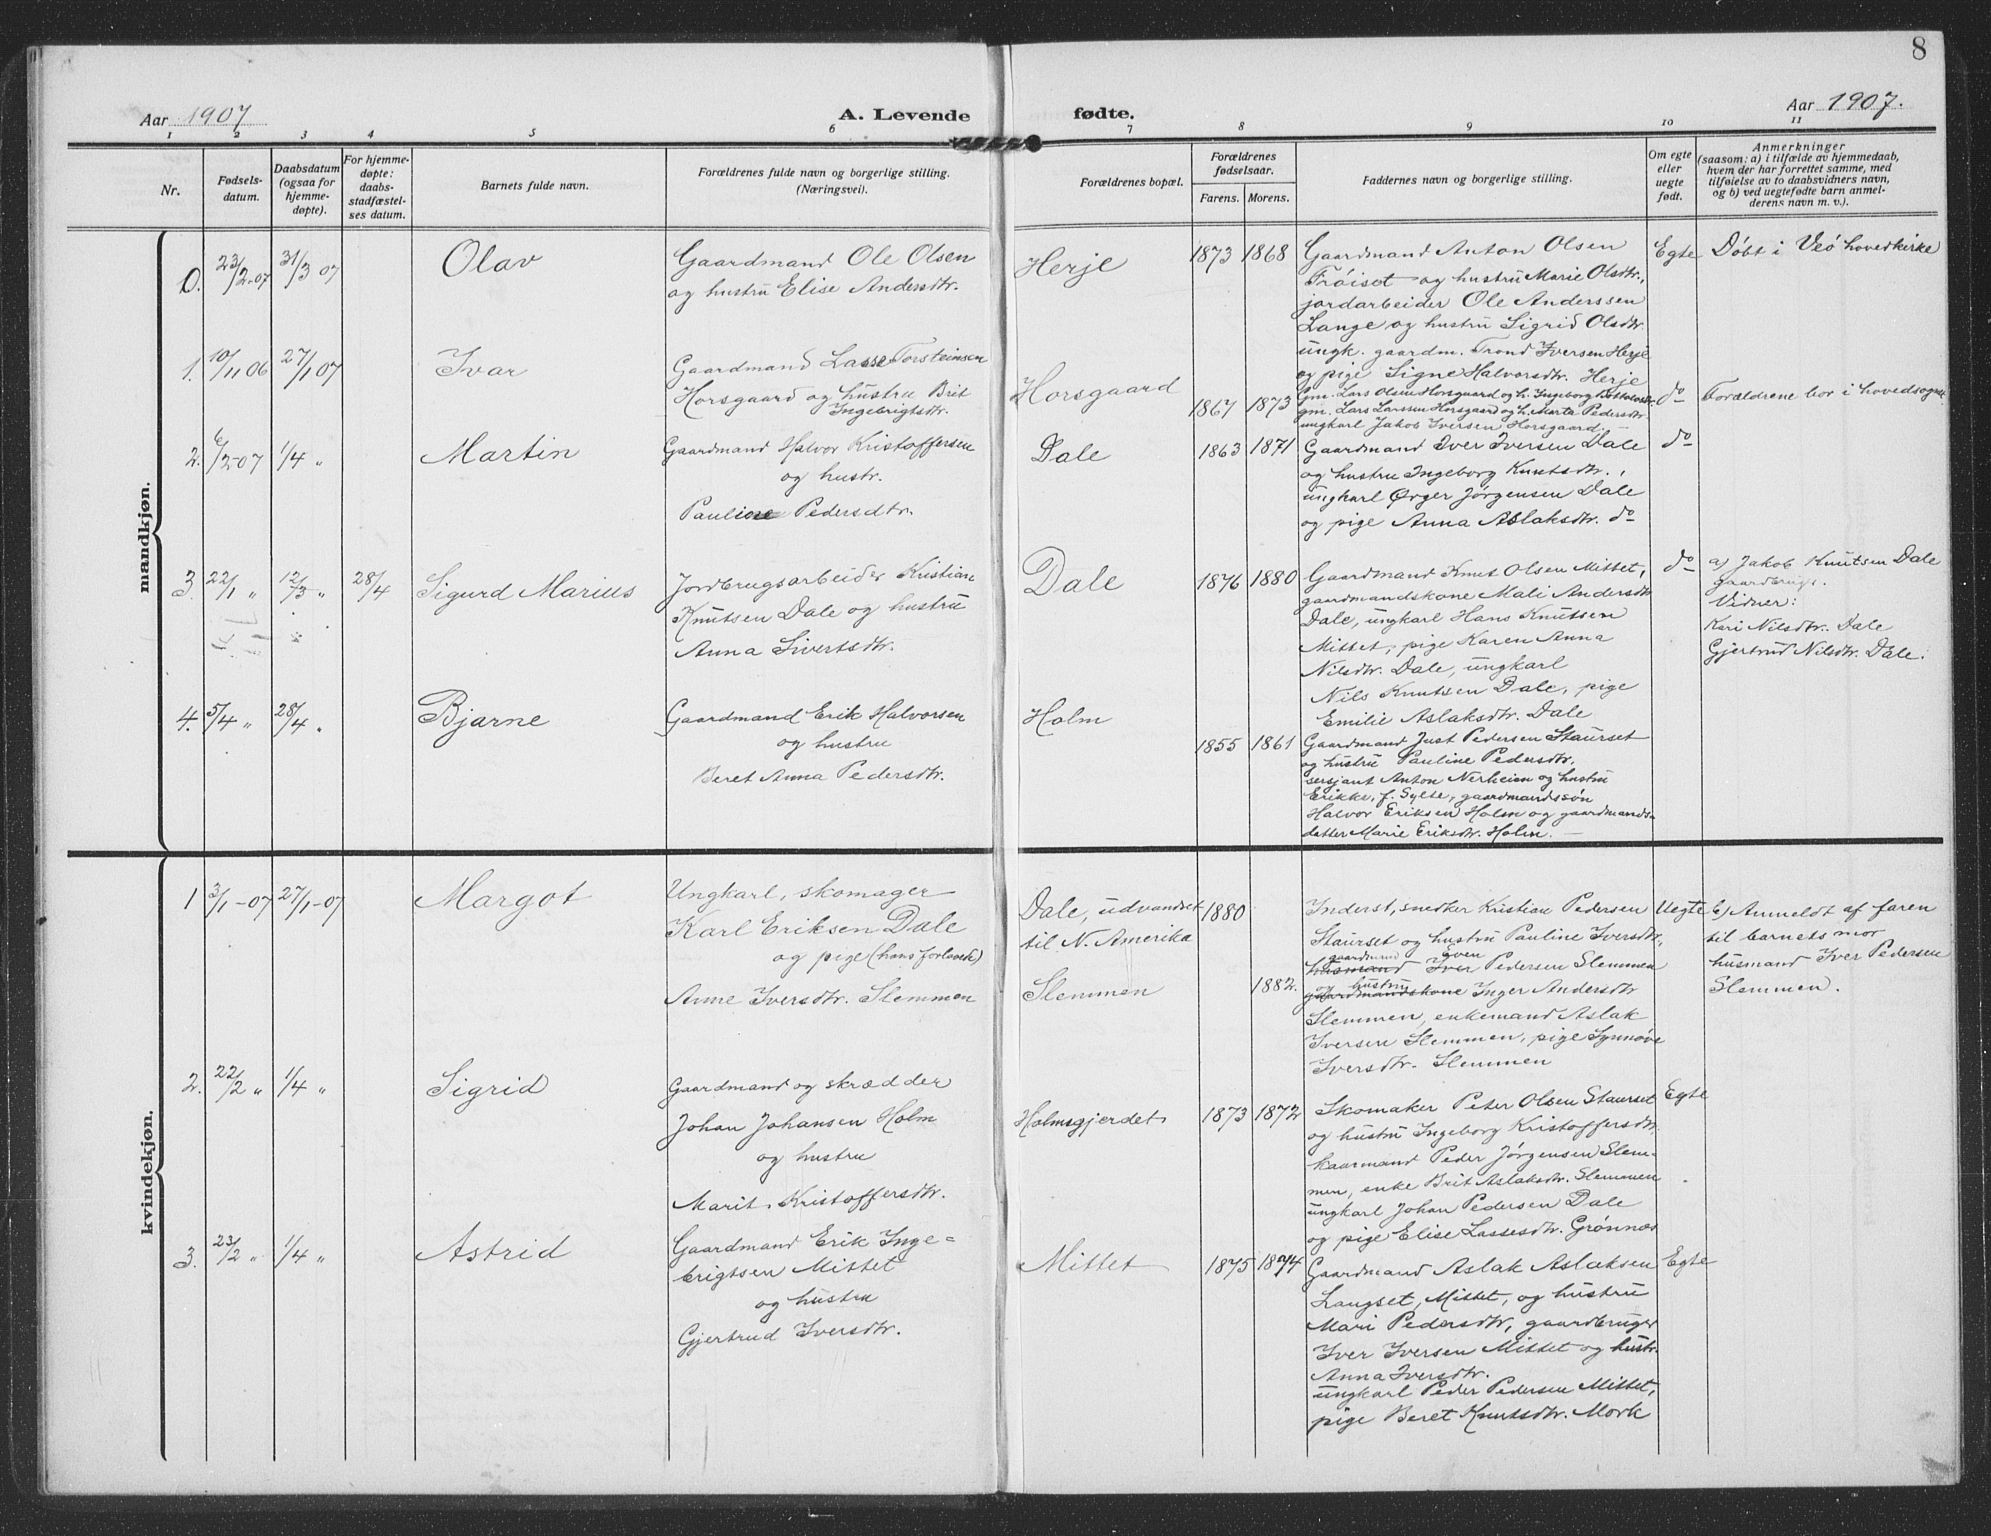 8
Aar 1907
A. Levende fødte.
Aar 1907.
1 2 3 4 5 6 7 8 9 10 11
Nr.
Fødsels-
datum.
Daabsdatum
(ogsaa for
hjemme-
døpte).
For hjemme-
døpte:
daabs-
stadfæstel-
ses datum.
Barnets fulde navn.
Forældrenes fulde navn og borgerlige stilling.
(Næringsvei).
Forældrenes bopæl.
Forældrenes
fødselsaar.
Farens. Morens.
Faddernes navn og borgerlige stilling.
Om egte
eller
uegte
født.
Anmerkninger
(saasom: a) i tilfælde av hjemmedaab,
hvem der har forrettet samme, med
tilføielse av to daabsvidners navn,
og b) ved uegtefødte barn anmel-
derens navn m. v.).
mandkjøn.
0. 23/2-07 31/3 07
Olav
Gaardmand Ole Olsen
og hustru Elise Andersdtr.
Herje
1873 1868
Gaardmand Anton Olsen
Trøiset og hustru Marie Olsdtr.,
jordarbeider Ole Anderssen
Lange og hustru Sigrid Olsdtr.
ungk. gaardm. Trond Iversen Herje
og pige Signe Halvorsdtr. Herje
Egte
Døbt i Veø hovedkirke
1. 10/11 06 27/1 07
Ivar
Gaardmand Lasse Torsteinsen
Horsgaard og hustru Brit
Ingebrigtsdtr.
Horsgaard
1867 1873
Gm. Lars Olsen Horsgaard og h. Ingeborg
gm. Lars Larssen Horsgaard og h. Marta Pedersdtr.
ungkarl Jakob Iversen Horsgaard. —
do
Forældrene bor i hovedsognet.
2. 6/2-07 1/4 "
Martin
Gaardmand Halvor Kristoffersen
og hustr.
Pauline Pedersdtr.
Dale
1863 1871
Gaardmand Iver Iversen Dale
og hustru Ingeborg Knutsdtr.,
ungkarl Ørger Jørgensen Dale
og pige Anna Aslaksdtr. do
do
3. 22/1 " 12/3 " 28/4
Sigurd Marius
Jordbrugsarbeider Kristian
Knutsen Dale og hustru
Anna Sivertsdtr.
Dale
1876 1880
Gaardmand Knut Olsen Mittet,
gaardmandskone Mali Andersdtr
Dale, ungkarl Hans Knutsen
Mittet, pige Karen Anna
Nilsdtr. Dale, ungkarl
Nils Knutsen Dale, pige
Emilie Aslaksdtr. Dale
do
a) Jakob Knutsen Dale
gaardbrug.
Vidner:
Kari Nilsdtr. Dale
Gjertrud Nilsdtr. Dale.
4. 5/4 " 28/4 "
Bjarne
Gaardmand Erik Halvorsen
og hustru
Beret Anna Pedersdtr.
Holm
1855 1861
Gaardmand Just Pedersen Staurset
og hustru Pauline Pedersdtr.
sersjant Anton Nerheim og hustru
Erikke, f. Sylte, gaardmandssøn
Halvor Eriksen Holm og gaardmands-
datter Marie Eriksdtr. Holm. —
kvindekjøn.
1 3/1-07 27/1-07
Margot
Ungkarl, skomager
Karl Eriksen Dale
og pige (hans forlovede)
Anne Iversdtr. Slemmen
Dale, udvandret
til N. Amerika
Slemmen
1880
1882.
Inderst, snedker Kristian Pedersen
Staurset og hustru Pauline Iversdtr.,
gaardmand Even
husmand Iver Pedersen Slemmen
og hustru
gaardmandskone Inger Andersdtr
Slemmen, enkemand Aslak
Iversen Slemmen, pige Synnøve
Iversdtr. Slemmen
Uegte
b) Anmeldt af faren
til barnets mor
husmand Iver Pedersen
Slemmen.
2. 22/2 " 1/4 "
Sigrid
Gaardmand og skrædder
Johan Johansen Holm
og hustru
Marit Kristoffersdtr.
Holmsgjerdet
1873 1872
Skomaker Peter Olsen Staurset
og hustru Ingeborg Kristoffersdtr.
kaarmand Peder Jørgensen Slem-
men, enke Brit Aslaksdtr. Slemmen
ungkarl Johan Pedersen Dale
og pige Elise Lassesdtr. Grønnes
Egte
3. 23/2 " 1/4 "
Astrid
Gaardmand Erik Inge-
brigtsen Mittet
og hustru
Gjertrud Iversdtr.
Mittet
1875 1874
Gaardmand Aslak Aslaksen
Langset, Mittet, og hustru
Mari Pedersdtr, gaardbruger
Iver Iversen Mittet og hustr.
Anna Iversdtr.
ungkarl Peder Pedersen Mittet,
pige Beret Knutsdtr. Mork
Egte